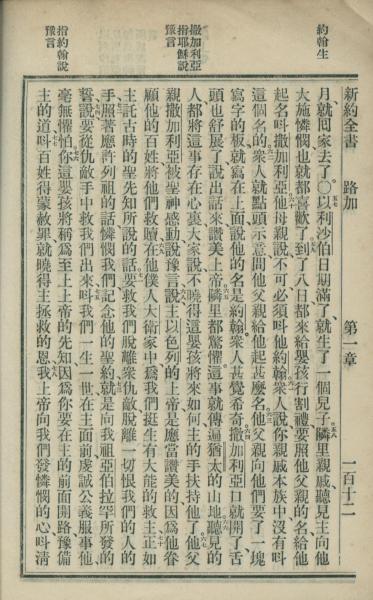 約翰生
撒加利亞
指耶穌說
豫言
指約翰說
豫言
新約全書 路加 第一章 一百十二
月就囘家去了〇以利沙伯日期滿了就生了一個兒子隣里親戚聽見主向他
大施憐憫也就都喜歡了到了八日都來給嬰孩行割禮要照他父親的名給他
起名呌撒加利亞他母親說不可必須呌他約翰衆人說你親戚本族中沒有呌
這個名的衆人就點頭示意問他父親給他起甚麽名他父親向他們要了一塊
寫字的板就寫在上面說他的名是約翰衆人甚覺希奇撒加利亞口就開了舌
頭也舒展了說出話來讚美上帝隣里都驚懼這事就傳遍猶太的山地聽見的
人都將這事存在心裏大家說不曉得這嬰孩將來如何主的手扶持他了他父
親撒加利亞被聖神感動說豫言說主以色列的上帝是應當讚美的因爲他眷
顧他的百姓將他們救贖在他僕人大衛家中爲我們挺生有大能的救主正如
主託古時的聖先知所說的話要救我們脫離衆仇敵脫離一切恨我們的人的
手照著應許列祖的話憐憫我們記念他的聖約就是向我祖亞伯拉罕所發的
誓說要從仇敵手中救我們出來呌我們一生一世在主面前虔誠公義服事他
毫無懼怕你這嬰孩將稱爲至上上帝的先知因爲你要在主的前面開路豫備
主的道呌百姓得蒙赦罪就曉得主拯救的恩我上帝向我們發憐憫的心呌淸